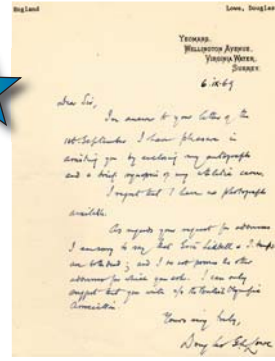 England Lowe, Douglas
YEOMANS,
WELLINGTON AVENUE,
VIRGINIA WATER,
SURREY.
6.ix.69
Dear Sir,
In answer to your letter of the
1st September I have pleasure in
assisting you by enclosing my autograph
and a brief synopsis of my athletic career.
I regret that I have no photograph
available.
As regards your request for addresses
I am sorry to say that Eric Liddell &
are both dead; and I do not possess the other
addresses for which you ask. I can only
suggest that you write c/o the British Olympic
Association.
Yours very truly,
Douglas Lowe